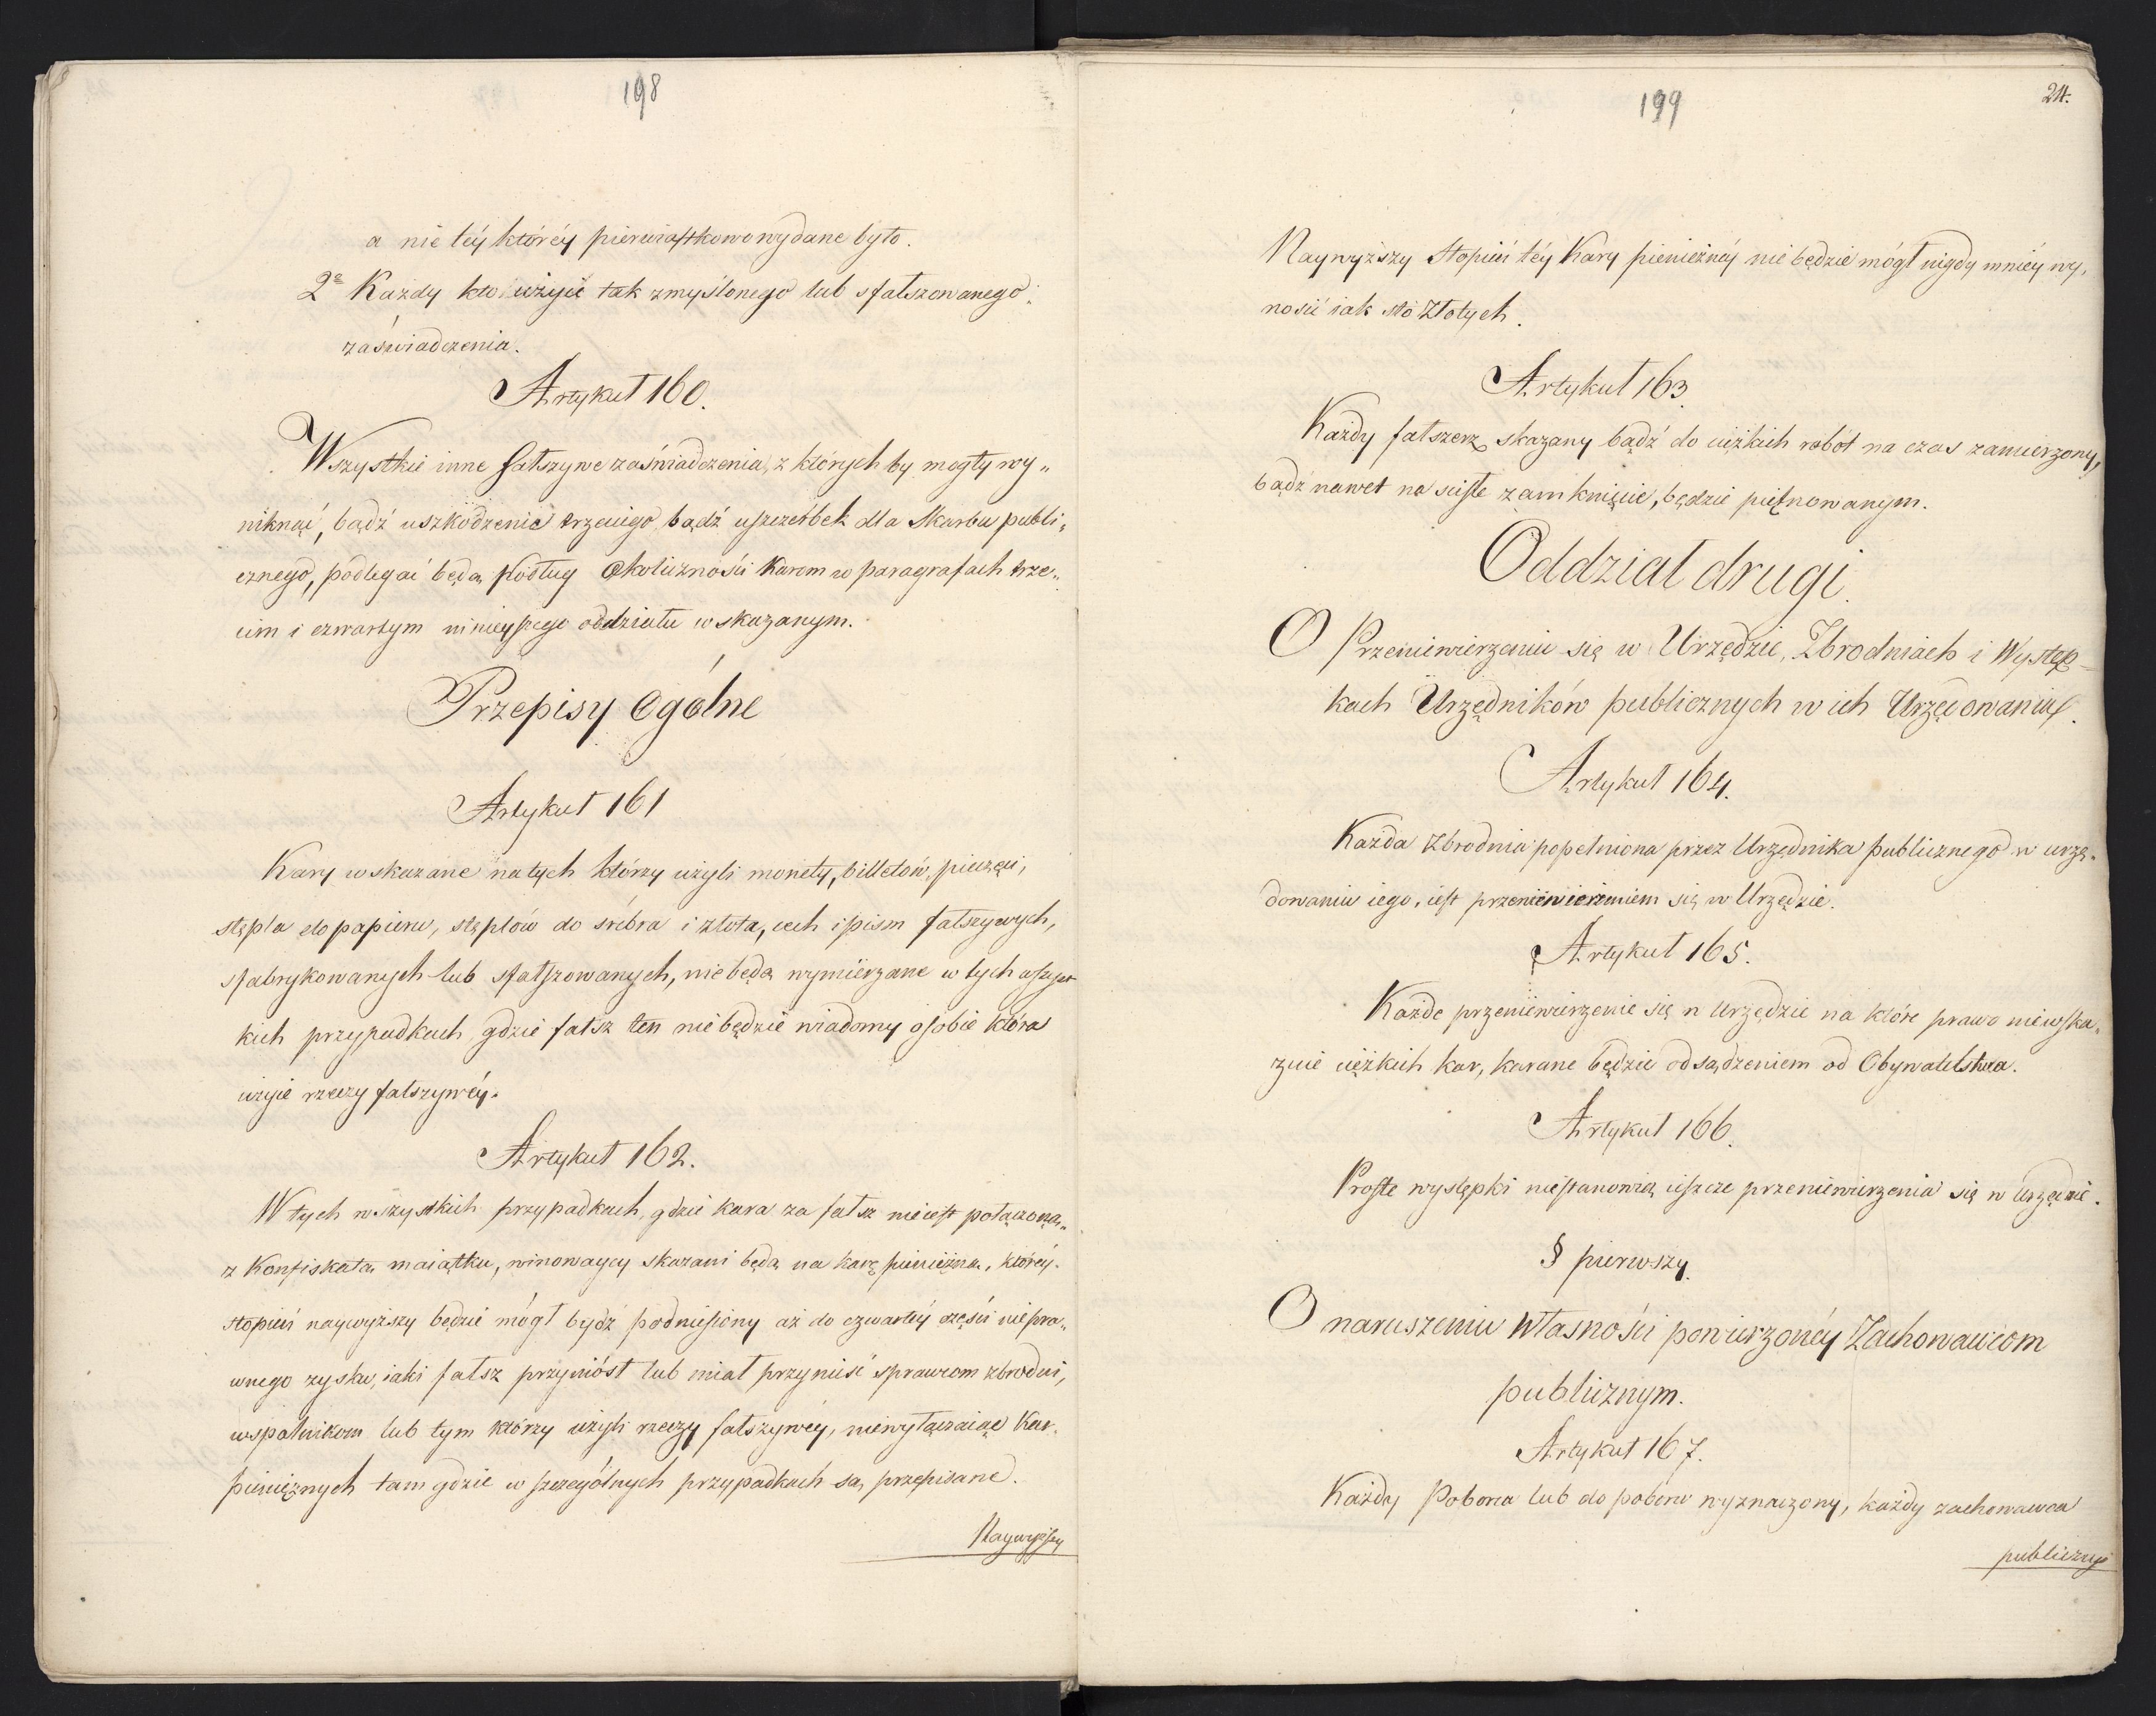 198
a nie tey którey pierwiastkowo wydane było.
2e Każdy kto użyie tak zmyślonego lub sfałszowanego
zaświadczenia.
Artykuł 160.
Wszystkie inne fałszywe zaświadczenia, z których by mogły wy„
niknąć, bądź uszkodzenie trzeciego, bądź uszczerbek dla Skarbu publi„
cznego, podlegać będą podług Okoliczności Karom w paragrafach trze„
cim i czwartym ninieyszego oddziału wskazanym.
Przepisy Ogólne
Artykuł 161
Kary wskazane na tych którzy użyli monety, billetów, pieczęci,
stępla do papieru, stęplów do śrebra i złota, cech i pism fałszywych,
sfabrykowanych lub sfałszowanych, nie będą wymierzane w tych wszyst
kich przypadkach gdzie fałsz ten nie będzie wiadomy osobie która
użyie rzeczy fałszywéy.
Artykuł 162.
W tych wszystkich przypadkach, gdzie kara za fałsz nie iest połączoną„
z Konfiskatą maiątku, winowaycy skazani będą na karę pieniężną, któréy
stopień naywyższy będzie mógł bydź podniesiony aż do czwartéy części niepra„
wnego zysku, iaki fałsz przyniósł lub miał przynieść sprawcom zbrodni,
wspolnikom lub tym którzy użyli rzeczy fałszywéy, niewyłączaiąc Kar
pieniężnych tam gdzie w szczególnych przypadkach są przepisane.
Naywyższy
199
24.
Naywyższy Stopień téy Kary pieniężnéy nie będzie mógł nigdy mniéy wy„
nosić iak sto Złotych.
Artykuł 163.
Każdy fałszerz skazany bądź do ciężkich robót na czas zamierzony,
bądź nawet na ścisłe zamknięcie, będzie piętnowanym.
Oddział drugi.
O Przeniewierzeniu się w Urzędzie, Zbrodniach i Występ-
kach Urzędników publicznych w ich Urzędowaniu.
Artykuł 164.
Każda Zbrodnia popełniona przez Urzędnika publicznego w urzę„
dowaniu iego, iest przeniewierzeniem się w Urzędzie.
Artykuł 165.
Każde przeniewierzenie się w Urzędzie na które prawo niewska„
zuie ciężkich kar, karane będzie odsądzeniem od Obywatelstwa.
Artykuł 166.
Proste występki niestanowią ieszcze przeniewierzenia się w Urzędzie.
§ pierwszy.
O naruszeniu Własności powierzonéy Zachowawcom
publicznym.
Artykuł 167.
Każdy Poborca lub do poboru wyznaczony, każdy zachowawca
publiczny